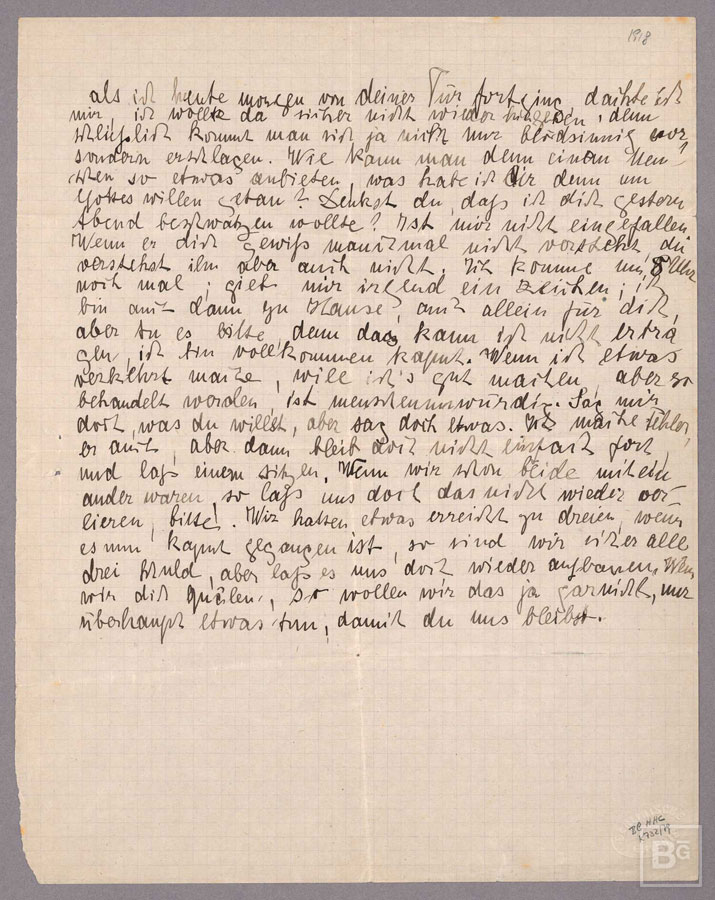 1918
als ich heute morgen von deiner Tür fortging, dachte ich
mir, ich wollte da sicher nicht wieder hingehen, denn
schließlich kommt man sich ja nicht nur blödsinnig vor
sondern erschlagen. Wie kann man denn einem Men-
schen so etwas anbieten, was habe ich dir denn um
Gottes willen getan? Denkst du, daß ich dich gestern
Abend beschwatzen wollte? Ist mir nicht eingefallen.
Wenn er dich gewiß manchmal nicht versteht, du
verstehst ihn aber auch nicht. Ich komme um 8 Uhr
noch mal; gieb mir irgend ein Zeichen; ich
bin auch dann zu Hause, auch allein für dich,
aber tu es bitte, denn das kann ich nicht ertra
gen, ich bin vollkommen kaput. Wenn ich etwas
verkehrt mache, will ich's gut machen, aber so
behandelt werden, ist menschenunwürdig. Sag mir
doch, was du willst, aber sag doch etwas. Ich mache Fehler,
er auch, aber dann bleib doch nicht einfach fort,
und laß einem sitzen. Wenn wir schon beide mitein
ander waren, so laß uns doch das nicht wieder ver-
lieren, bitte!. Wir hatten etwas erreicht zu dreien, wenn
es nun kaput gegangen ist, so sind wir sicher alle
drei schuld, aber laß es uns doch wieder aufbauen. Wenn
wir dich quälen, so wollen wir das ja garnicht, nur
überhaupt etwas tun, damit du uns bleibst.
BG HHC
BG